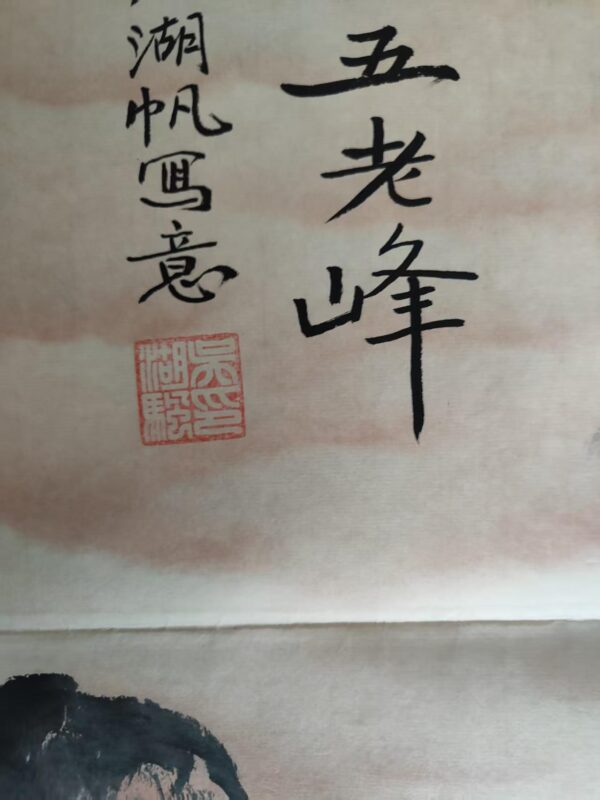 五老峰
湖帆寫意
吳印
湖颿